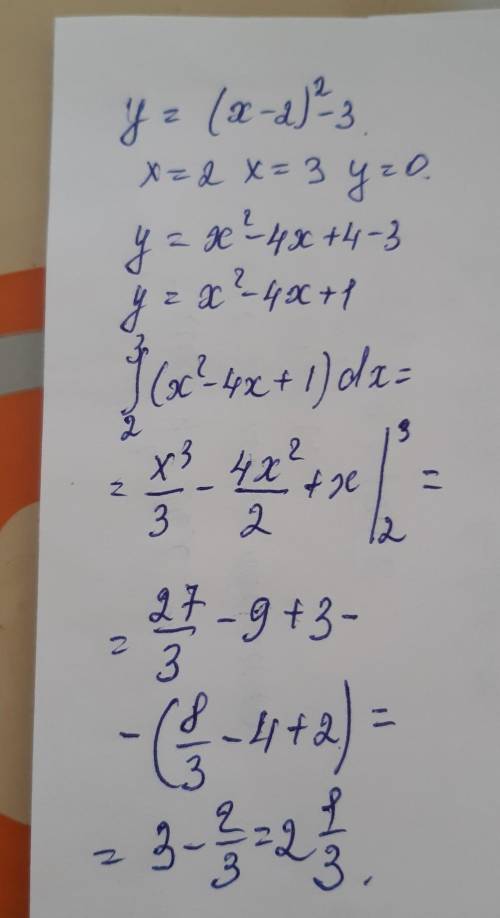 y = (x-2)²-3.
x=2 x=3 y=0.
y = x²-4x+4-3
y = x²-4x+1
∫₂³(x²-4x+1)dx=
= x³/3 - 4x²/2 + x |₂³ =
= 27/3 - 9 + 3 -
- (8/3 - 4 + 2) =
= 3 - 2/3 = 2 1/3.